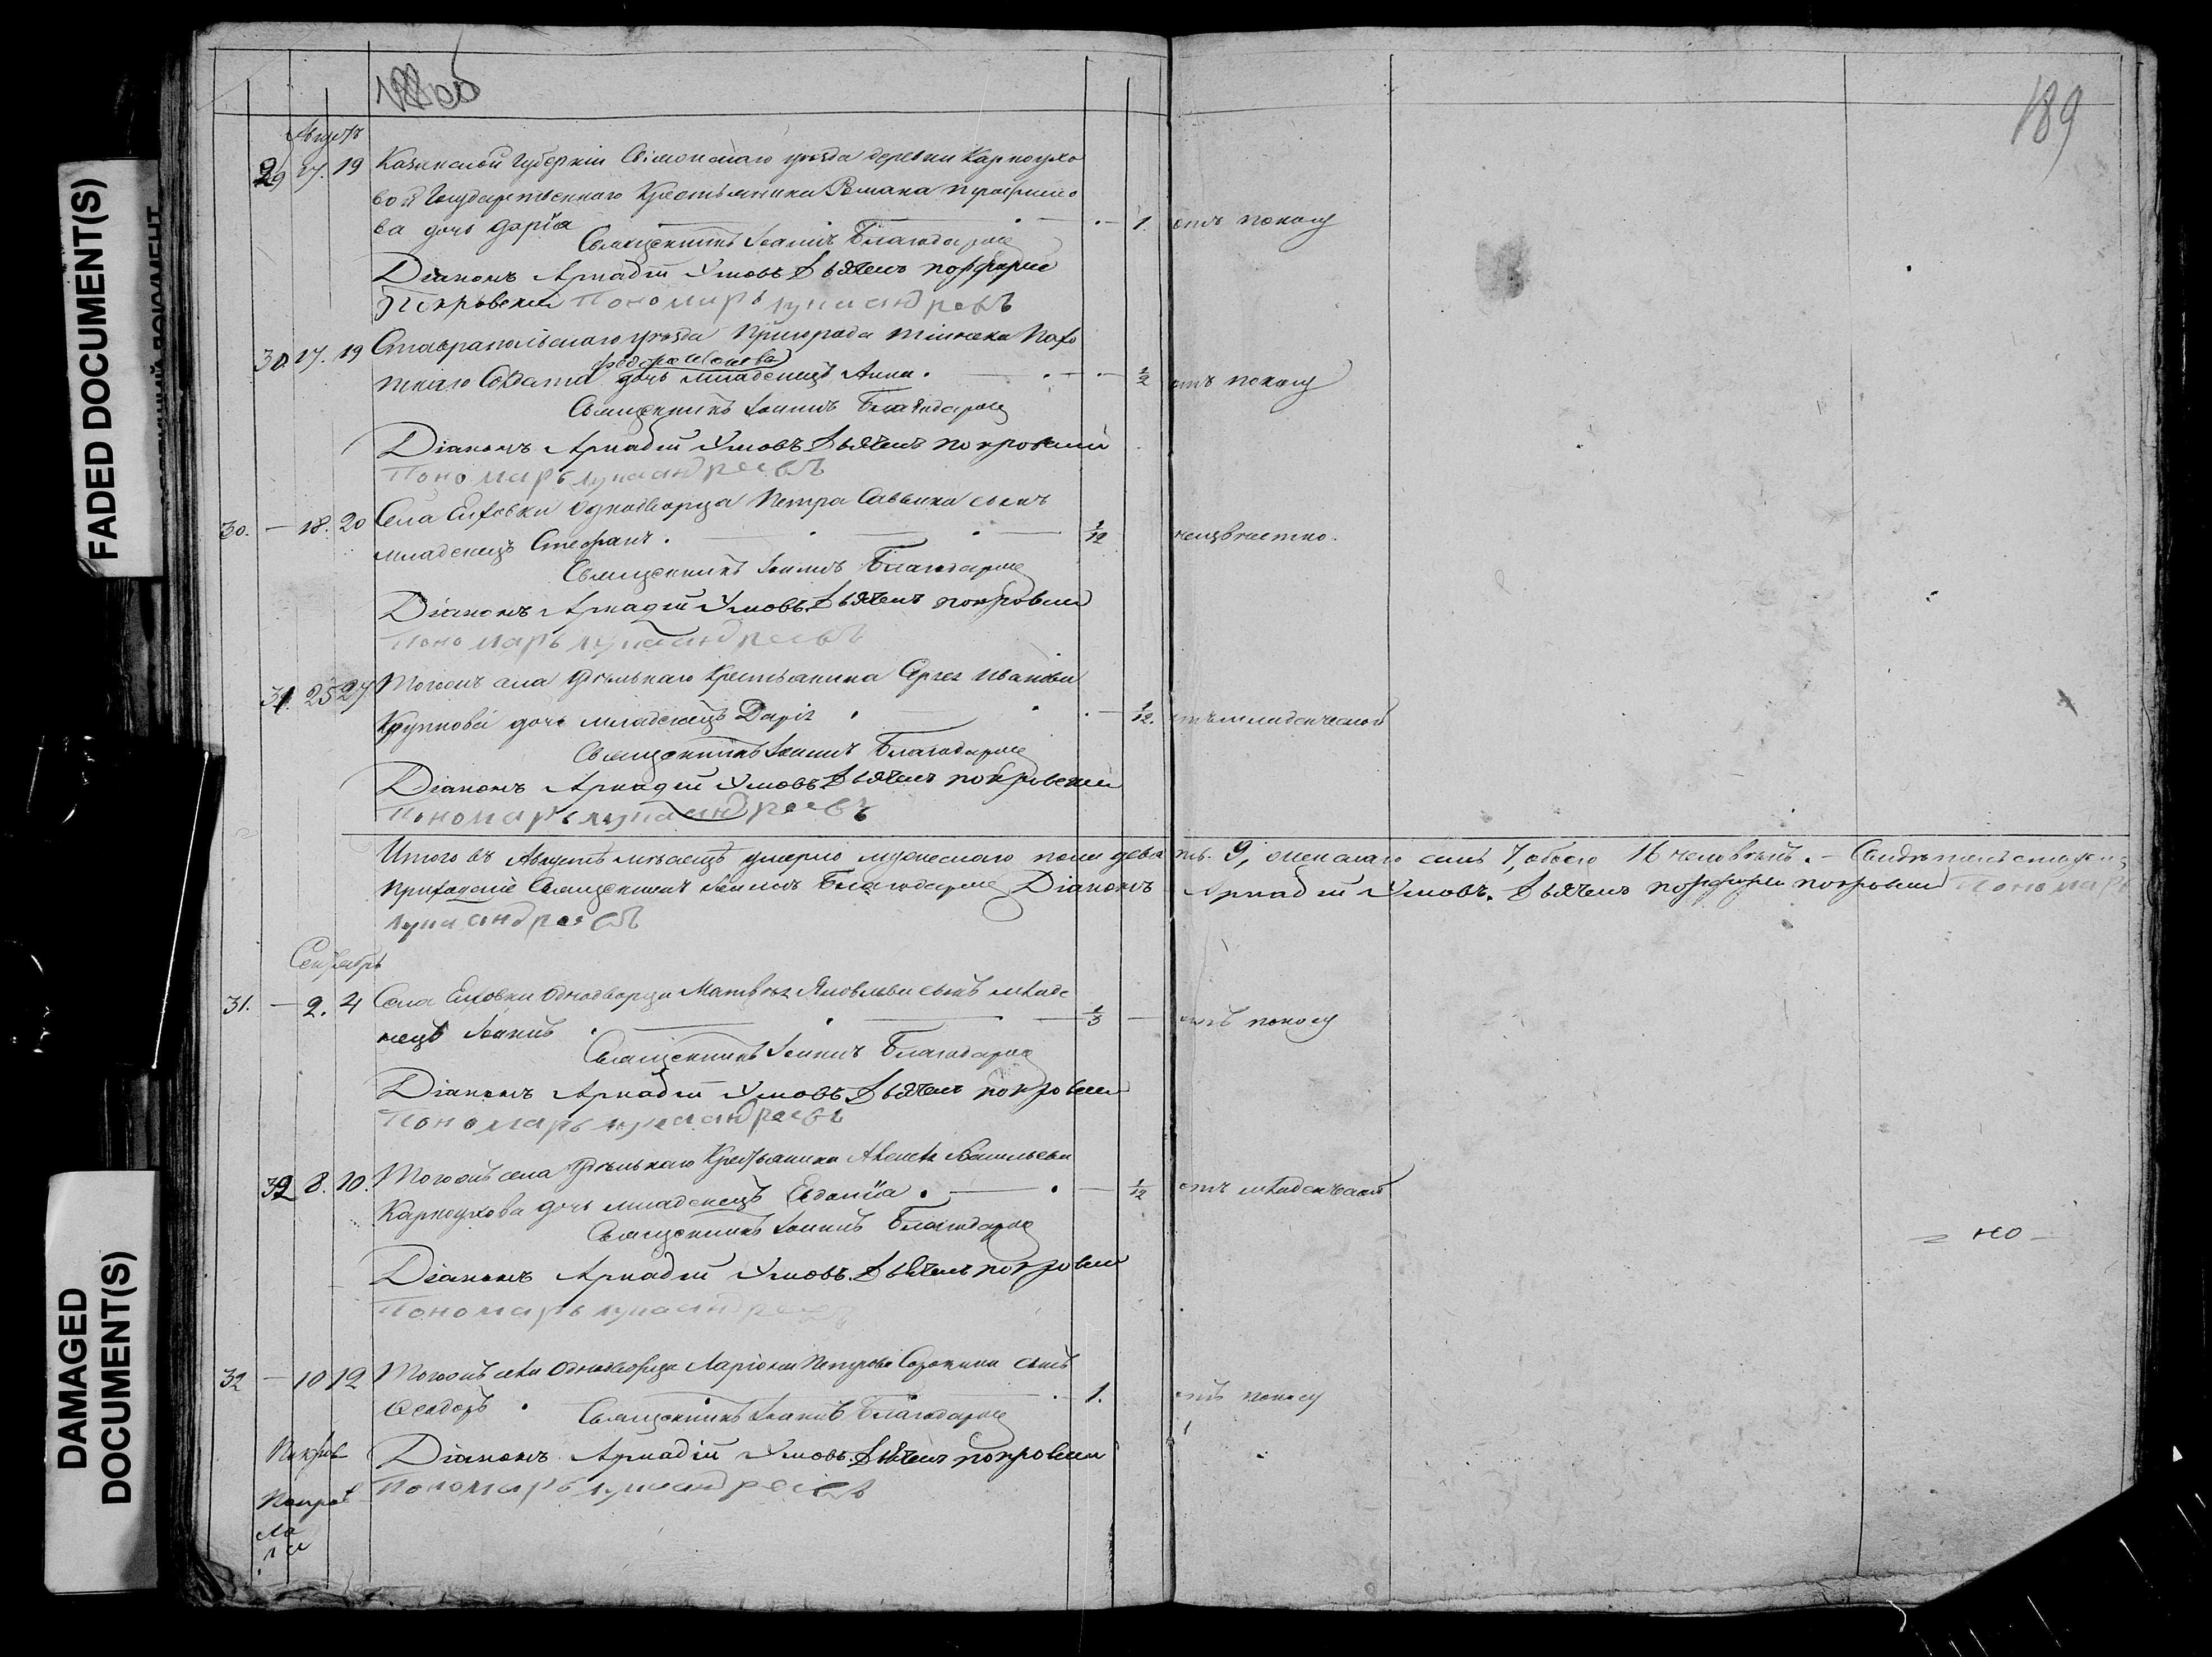 FADED DOCUMENT(S)
DAMAGED DOCUMENT(S)
188 об
189
Августъ
29 17. 19 Казанской Губерніи уѣзда деревни Карпоухо
вой Государственнаго Крестьянина Романа
ва дочь Дарія 1. отъ поносу
Священникъ Іоаннъ Благодаровъ
Діаконъ Аркадій Умовъ Дьячекъ Порфирий
Покровский Пономарь Лука андреевъ
30. 17. 19 Ставропольскаго уѣзда Пригорода Тіинска Пахо
тнаго Солдата дочь младенецъ Анна. 1/2 отъ поносу
Священникъ Іоаннъ Благодаровъ
Діаконъ Аркадій Умовъ Дьячекъ покровский
Пономарь Лука андреевъ
30. — 18. 20 Села Елховки Однодворца Петра Саввина сынъ
младенецъ Стефанъ. 1/12 неизвѣстно.
Священникъ Іоаннъ Благодаровъ
Діаконъ Аркадій Умовъ Дьячекъ покровский
Пономарь Лука андреевъ
31. 25 27 Тогожъ села Удѣльнаго Крестьянина Сергея Иванова
Крупнова дочь младенецъ Дарія 1/12. отъ младенческой
Священникъ Іоаннъ Благодаровъ
Діаконъ Аркадій Умовъ Дьячекъ покровский
Пономарь Лука андреевъ
Итого въ Августѣ мѣсяцѣ умерло мужескаго пола девять. 9, женскаго семь 7, обоего 16 человѣкъ. —
Священникъ Іоаннъ Благодаровъ Діаконъ Аркадій Умовъ. Дьячекъ порфирий покровский Пономарь
Лука андреевъ
Сентябрь
31. — 2. 4 Села Елховки Однодворца Матвѣя Яковлева сынъ младе
нецъ Іоаннъ 1/3 — отъ поносу
Священникъ Іоаннъ Благодаровъ
Діаконъ Аркадій Умовъ Дьячекъ покровский
Пономарь Лука андреевъ
32 8. 10. Тогожъ села Удѣльнаго Крестьянина Алексѣя Васильева
Карпоухова дочь младенецъ Евдокія. 1/12 отъ младенческой
Священникъ Іоаннъ Благодаровъ
Діаконъ Аркадій Умовъ. Дьячекъ покровский
Пономарь Лука андреевъ
но
32 — 10 12 Тогожъ села Однодворца Ларіона Петрова Сорокина сынъ
Феодоръ. 1. отъ поносу
Священникъ Іоаннъ Благодаровъ
Діаконъ Аркадій Умовъ. Дьячекъ покровский
Пономарь Лука андреевъ